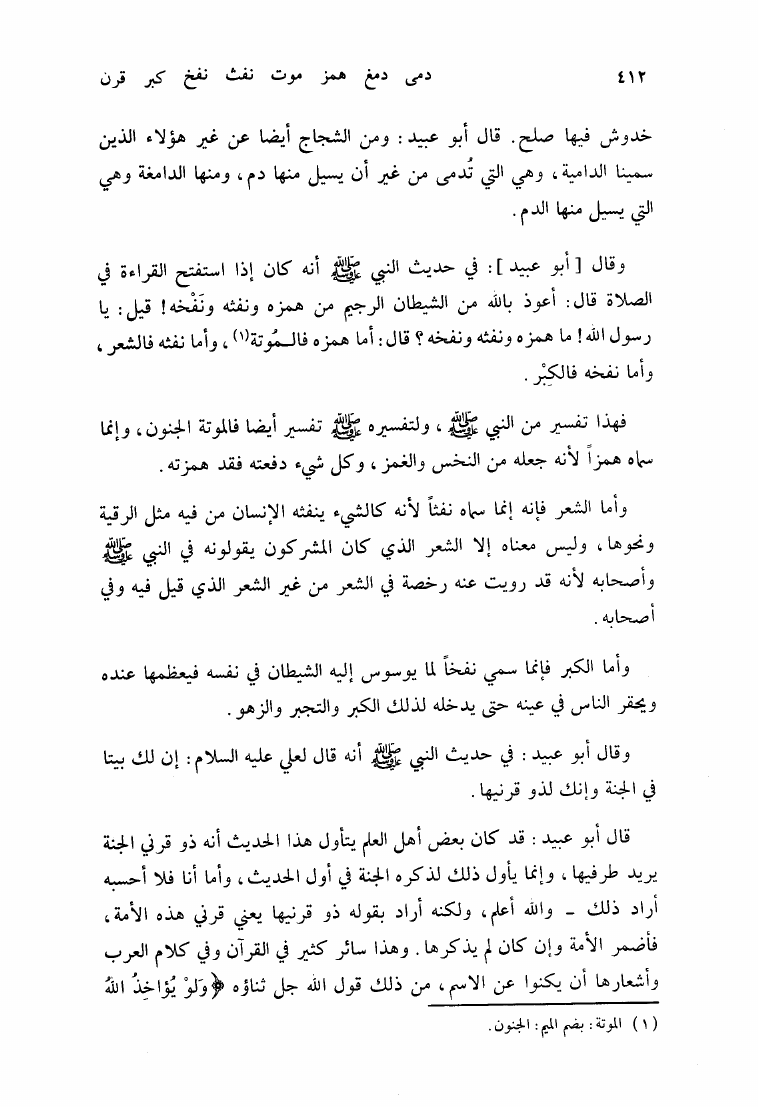 ٤١٢ دمى دمغ همز موت نفث نفخ كبر قرن
خدوش فيها صلح. قال أبو عبيد: ومن الشجاج أيضا عن غير هؤلاء الذين
سمينا الدامية، وهي التي تُدمى من غير أن يسيل منها دم، ومنها الدامغة وهي
التي يسيل منها الدم.
وقال [أبو عبيد]: في حديث النبي ﷺ أنه كان إذا استفتح القراءة في
الصلاة قال: أعوذ بالله من الشيطان الرجيم من همزه ونفثه ونَفْخه! قيل: يا
رسول الله! ما همزه ونفثه ونفخه؟ قال: أما همزه فالـمُوتة(١)، وأما نفثه فالشعر،
وأما نفخه فالكِبْر.
فهذا تفسير من النبي ﷺ، ولتفسيره ﷺ تفسير أيضا فالموتة الجنون، وإنما
سماه همزاً لأنه جعله من النخس والغمز، وكل شيء دفعته فقد همزته.
وأما الشعر فإنه إنما سماه نفثاً لأنه كالشيء ينفثه الإنسان من فيه مثل الرقية
ونحوها، وليس معناه إلا الشعر الذي كان المشركون يقولونه في النبي ﷺ
وأصحابه لأنه قد رويت عنه رخصة في الشعر من غير الشعر الذي قيل فيه وفي
أصحابه.
وأما الكبر فإنما سمي نفخاً لما يوسوس إليه الشيطان في نفسه فيعظمها عنده
ويحقر الناس في عينه حتى يدخله لذلك الكبر والتجبر والزهو.
وقال أبو عبيد: في حديث النبي ﷺ أنه قال لعلي عليه السلام: إن لك بيتا
في الجنة وإنك لذو قرنيها.
قال أبو عبيد: قد كان بعض أهل العلم يتأول هذا الحديث أنه ذو قرني الجنة
يريد طرفيها، وإنما يأول ذلك لذكره الجنة في أول الحديث، وأما أنا فلا أحسبه
أراد ذلك - والله أعلم، ولكنه أراد بقوله ذو قرنيها يعني قرني هذه الأمة،
فأضمر الأمة وإن كان لم يذكرها. وهذا سائر كثير في القرآن وفي كلام العرب
وأشعارها أن يكنوا عن الاسم، من ذلك قول الله جل ثناؤه ﴿وَلَوْ يُؤَاخِذُ اللهُ
(١) الموتة: بضم الميم: الجنون.